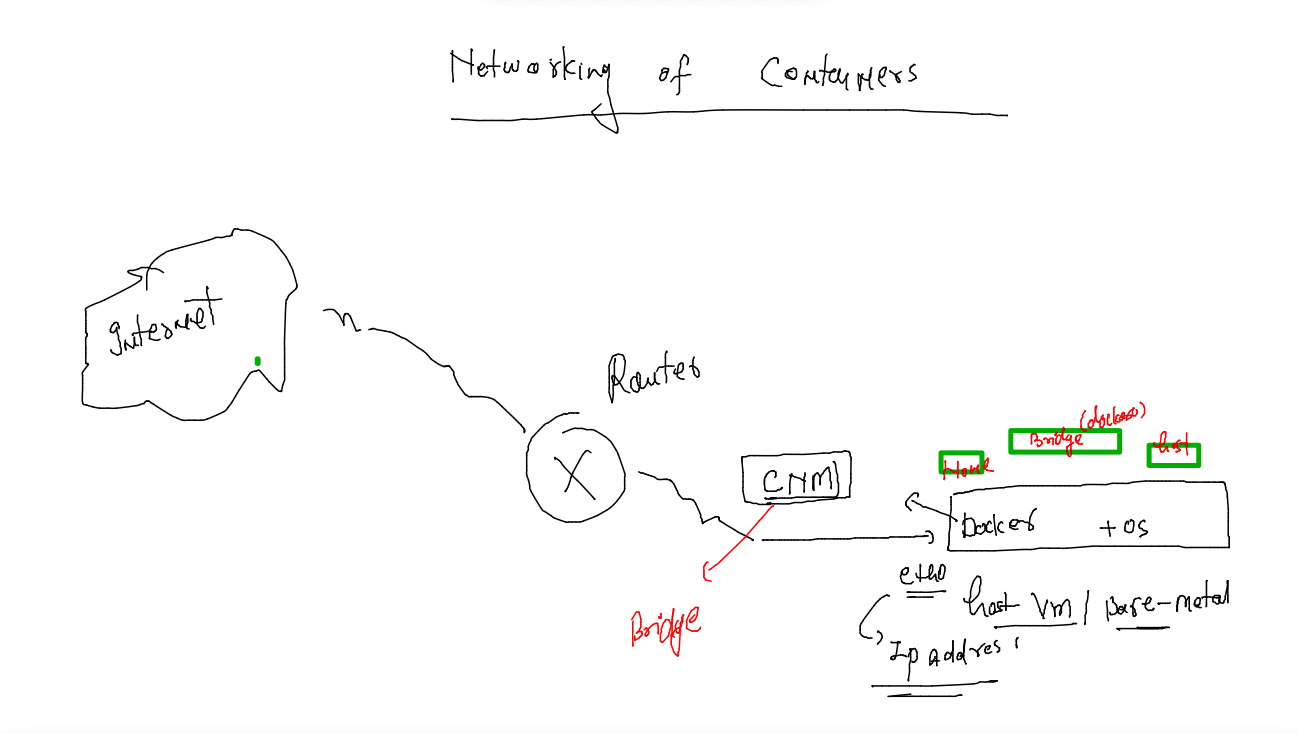 Networking of Containers
Internet
Router
X
CNM
Bridge
(docker0)
Bridge
host
None
Docker + OS
eth0
host VM / Bare-metal
Ip address